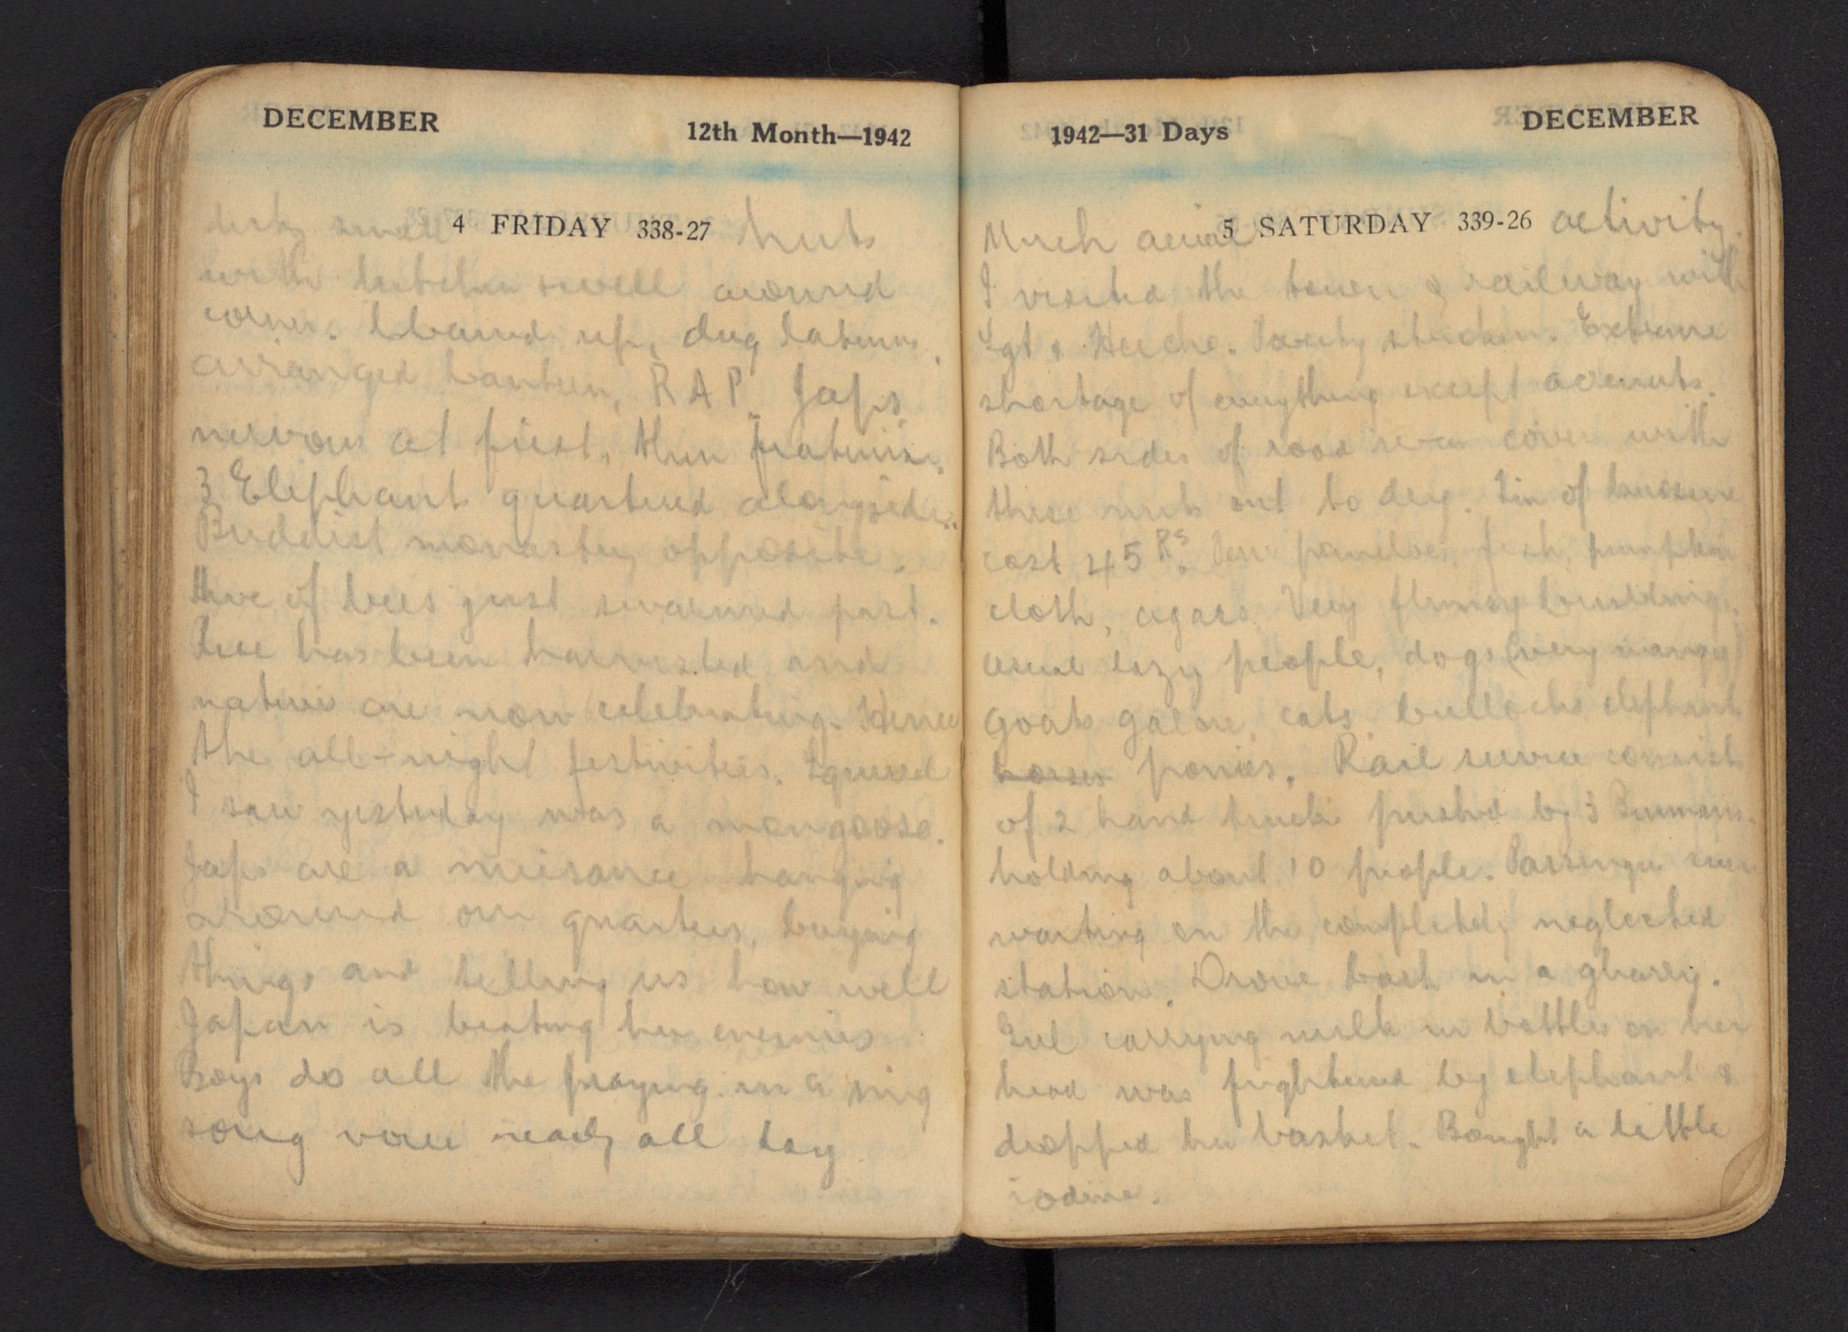 DECEMBER
12th Month—1942
4 FRIDAY 338-27
dirty small huts
with kitchen well around
corner. Cleaned up, dug latrines,
arranged canteen, R A P. Japs
nervous at first, then fraternise.
3 Elephant quartered alongside.
Buddist monastery opposite.
Hive of bees just swarmed past.
Rice has been harvested and
natives are now celebrating. Hence
the all-night festivities. Squirrel
I saw yesterday was a mongoose.
Japs are a nuisance hanging
around our quarters, buying
things and telling us how well
Japan is beating her enemies
Boys do all the praying in a sing
song voice nearly all day
1942—31 Days
DECEMBER
5 SATURDAY 339-26
Much aerial activity.
I visited the town & railway with
Sgt s. Poverty stricken. Extreme
shortage of everything except
Both sides of road were cover with
these nuts out to dry. Tin of kerosene
cost 45 Rs. fish, pumpkin
cloth, cigars. Very flimsy buildings.
usual lazy people, dogs (very mangy)
goats galore, cats bullocks elephant
horses ponies. Rail service consist
of 2 hand trucks pushed by 3 Burmans.
holding about 10 people. Passenger were
waiting on the completely neglected
station. Drove back in a gharry.
Girl carrying milk in bottles on her
head was frightened by elephant &
dropped her basket. Bought a little
iodine.